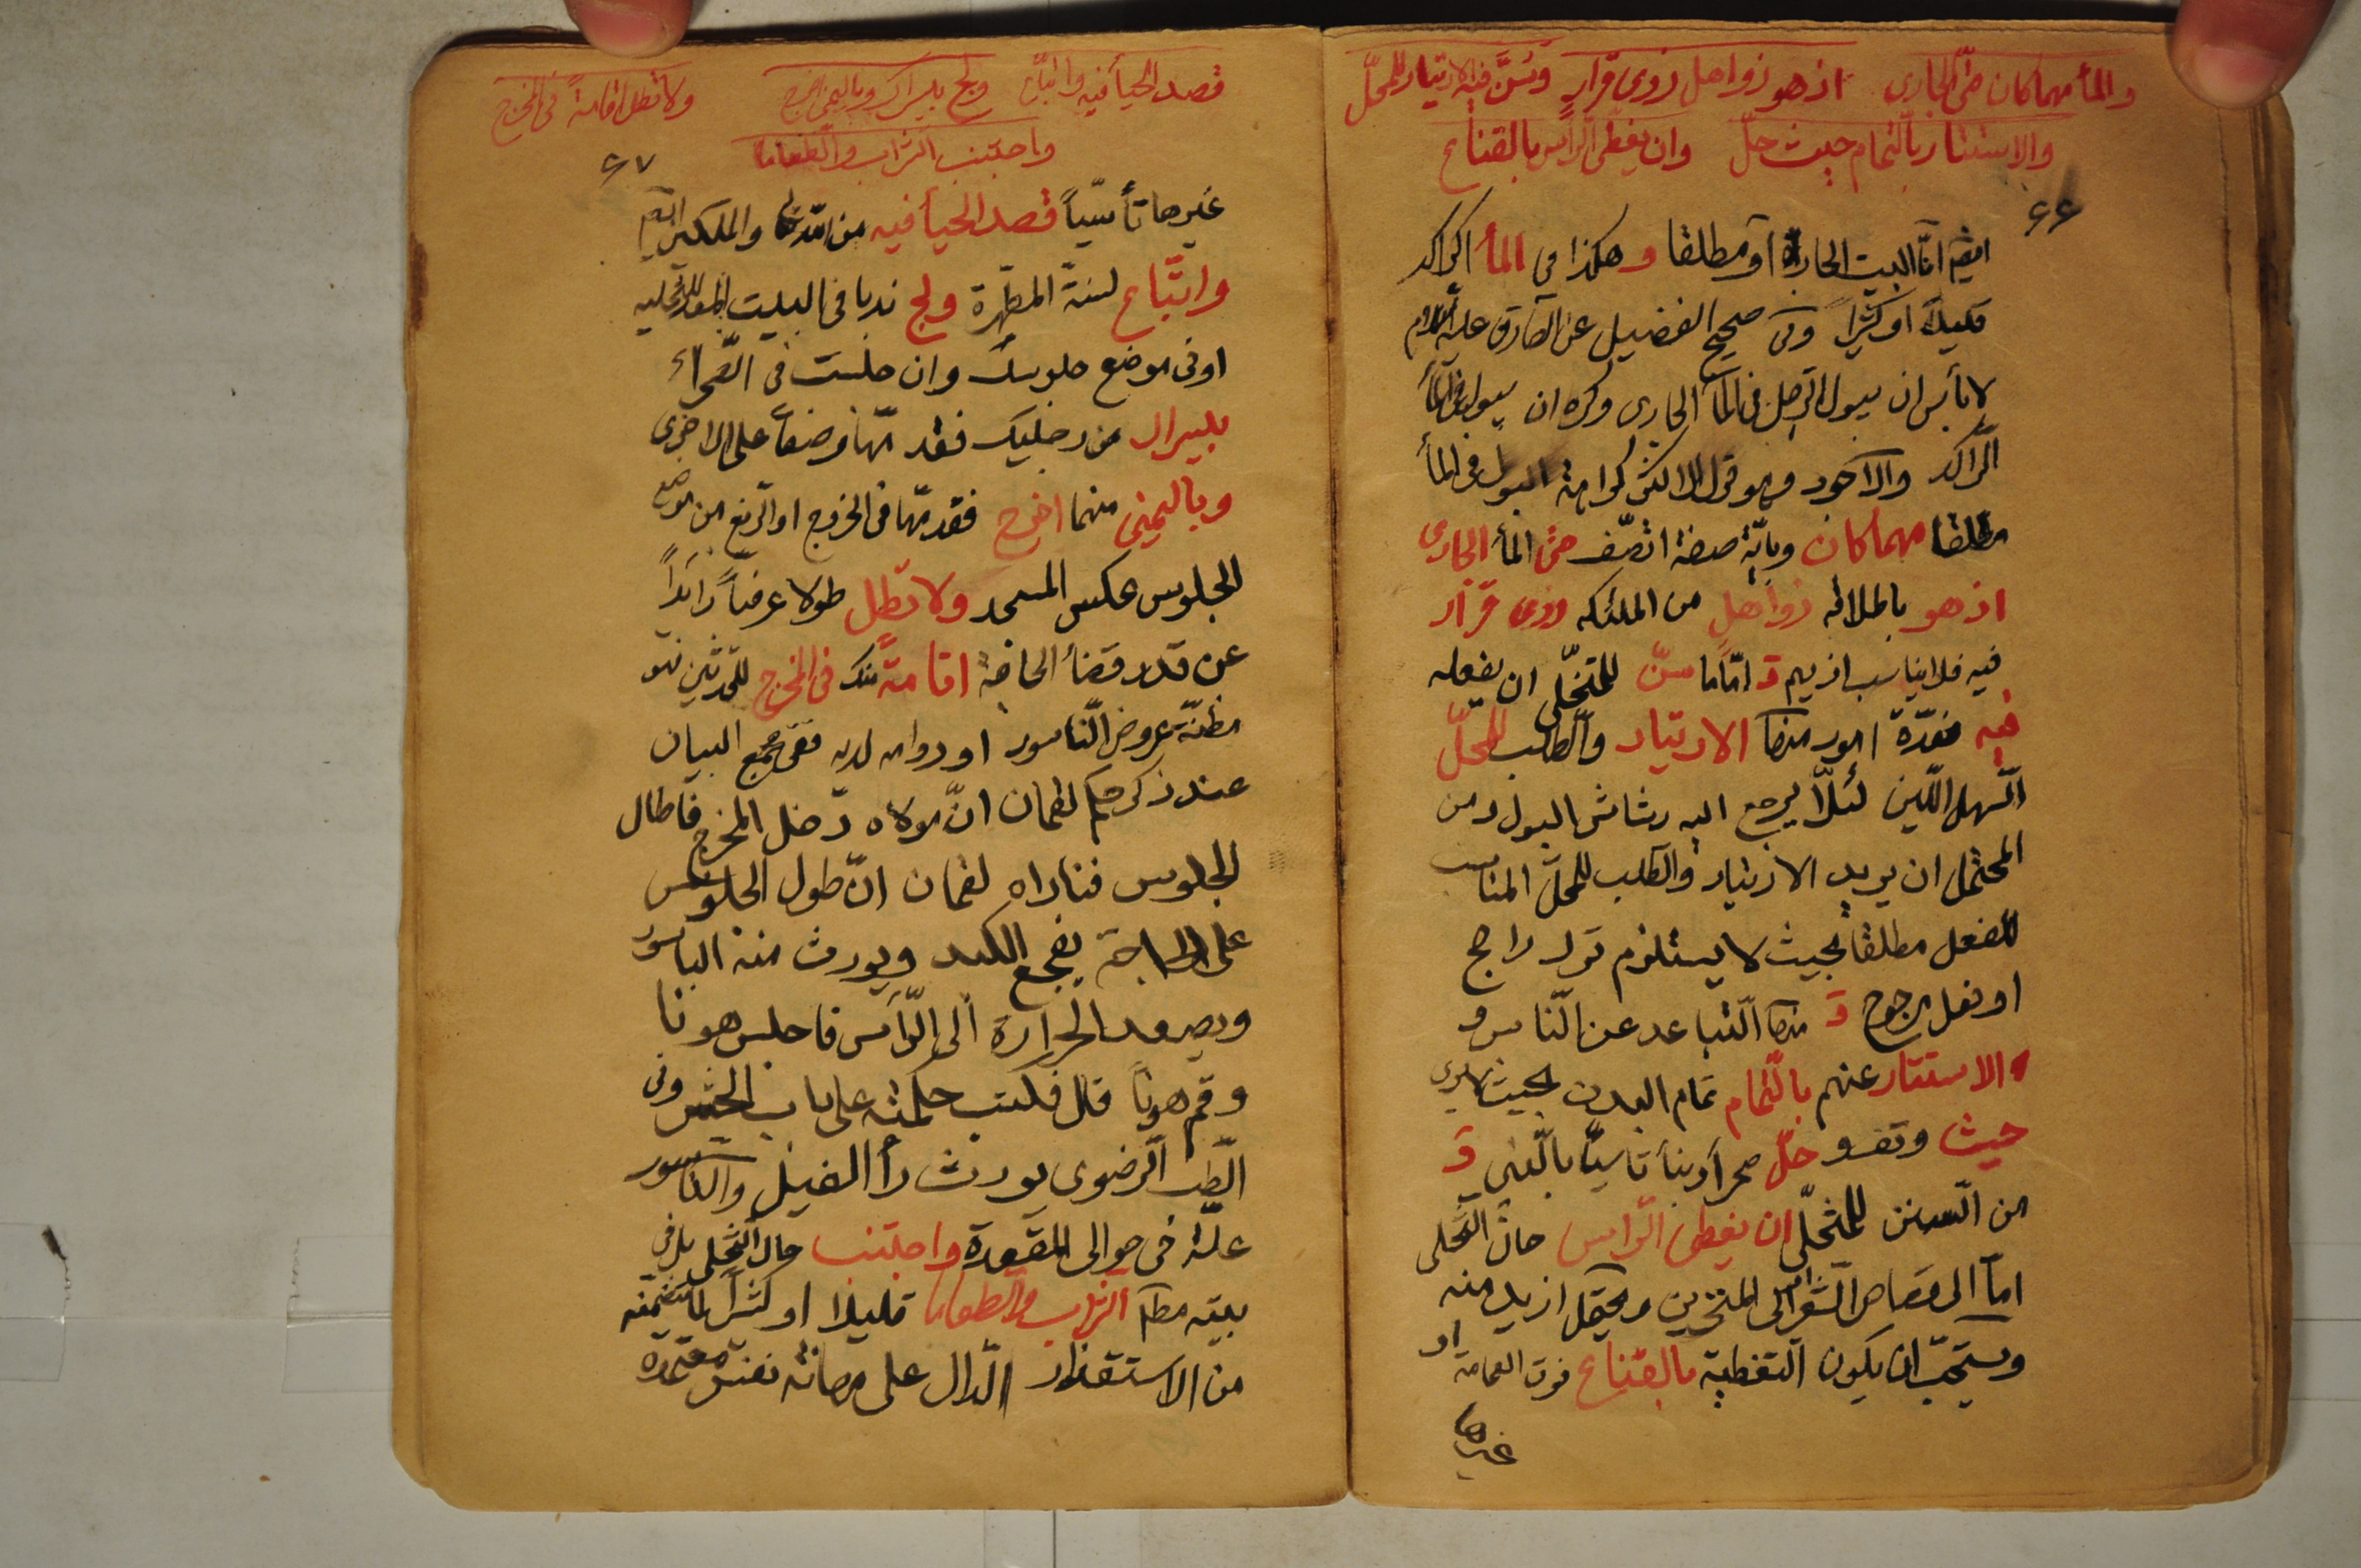 والمأ مهما كان حتى الجاري اذ هو ذو اهل وذى قرار وسن فيه الارتياد للمحل
والاستتار بالتمام حيث حل وان يغطى الراس بالقناع
۶۶
وهكذا في المأ الراكد
قليلاً او كثيراً وفى صحيح الفضيل عن الصادق عليه السلام
لا بأس ان يبول الرجل فى المأ الجارى وكره ان يبول فى المأ
الراكد والاجود وهو قول الاكثر كراهة البول فى المأ
مطلقا مهما كان وباية صفة اتصف حتى المأ الجارى
اذ هو باطلاقه ذو اهل من الملئكه وذى قرار
فيه فلا يناسب اذيهم و اما ما سن للمتخلى ان يفعله
فيه فعدة امور منها الارتياد والطلب للمحل
السهل اللين لئلا يرجع اليه رشاش البول ومن
المحتمل ان يريد الارتياد والطلب للمحل المناسب
للفعل مطلقا بحيث لا يستلزم ترك راجح
او فعل مرجوح و منها التباعد عن الناس و
والاستتار عنهم بالتمام تمام البدن بحيث لا يرى
حيث وقف و حل صحرأ وبنأ تاسيا بالنبى و
من السنن للمتخلى ان يغطى الراس حال التخلى
اما الى قصاص الشعر او الى المنخرين ويحتمل ازيد منه
ويستحب ان يكون التغطية بالقناع فوق العمامة او
غيرها
قصد الحيأ فيه واتباع ولج بليسراك وباليمنى اخرج ولا تطل اقامة فى المخرج
واجتنب الشراب والطعاما
۶۷
غيرها تأسيا قصد الحيأ فيه من الله والملكين
واتباع لسنة المطهرة ولج ندبا فى البيت المعد للتخليه
او فى موضع جلوسك وان جلست فى الصحراء
بليسراك من رجليك فقدمها وضعاً على الاخرى
وباليمنى منهما اخرج فقدمها فى الخروج او الرفع من موضع
الجلوس عكس المسجد ولا تطل طولا عرفياً زائداً
عن قدر قضأ الحاجة اقامة منك فى المخرج للتحدثين فهو
مظنة عروض الناسور او دوامه لديه ففى مجمع البيان
عند ذكر حكم لقمان ان مولاه دخل المخرج فاطال
الجلوس فناداه لقمان ان طول الجلوس
على الحاجة يفجع الكبد ويورث منه الباسور
ويصعد الحرارة الى الرأس فاجلس هونا
وقم هوناً قال فكتب حكمته على باب الحش وفى
الطب الرضوى يورث دأ الفيل والناسور
علة فى حوالى المقعدة واجتنب حال التخلى بل فى
بيته مطم الشراب والطعاما قليلا او كثيراً لما يتضمنه
من الاستقذار الدال على مهانة نفس